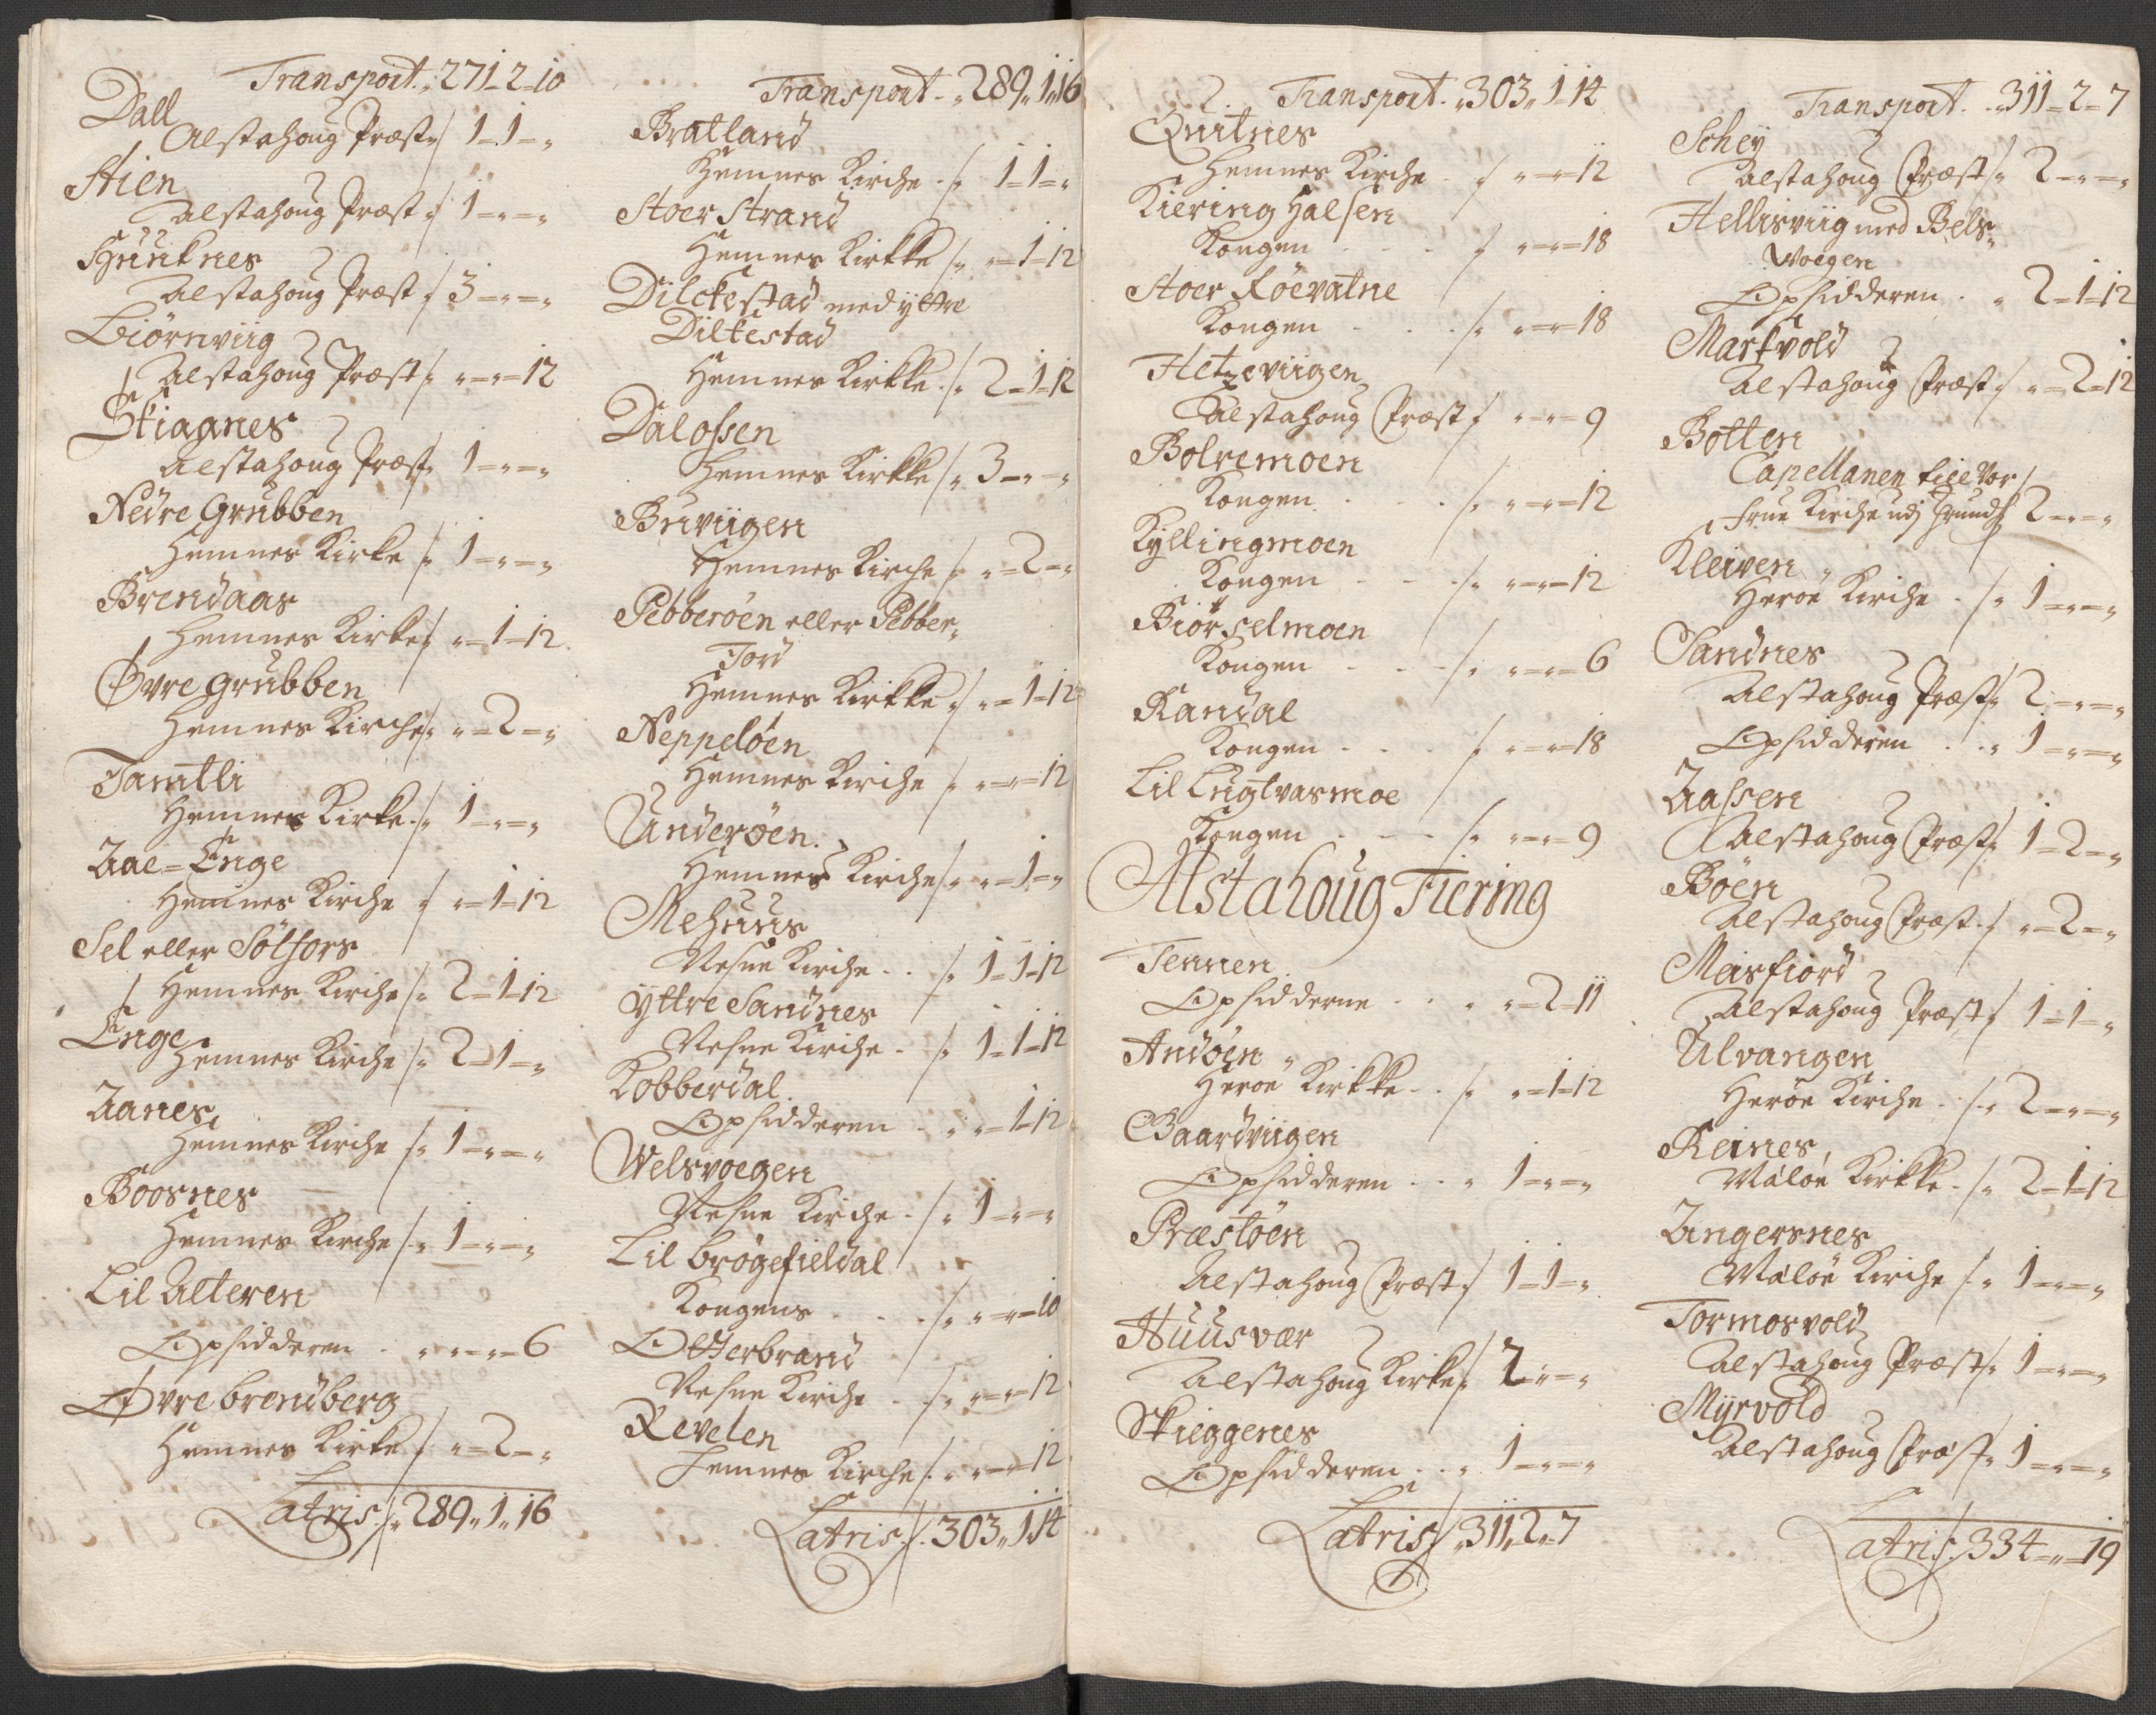 Transport ,, 271-2-10
Dall
Alstahoug Præst 1-1-"
Stien
Alstahoug Præst 1-"-"
Huuknes
Alstahoug Præst 3-"-"
Biörnviig
Alstahoug Præst "-"-12
Stiagnes
Alstahoug Præst 1-"-"
Nedre Grubben
Hemnes Kirke 1-"-"
Brendaas
Hemnes Kirke "-1-12
Øvre Grubben
Hemnes Kirche "-2-"
Tamtli
Hemnes Kirke 1-"-"
Aae-Enge
Hemnes Kirche "-1-12
Sel eller Sölfors
Hemnes Kirche 2-1-12
Enge
Hemnes Kirche 2-1-"
Aanes
Hemnes Kirche 1-"-"
Boosnes
Hemnes Kirche 1-"-"
Lil Alteren
Opsidderen "-"-6
Øvre brendberg
Hemnes Kirke "-2-"
Latris 289,, 1,, 16
Transport ,, 289,, 1,, 16
Bratland
Hemnes Kirche 1-1-"
Stoer Strand
Hemnes Kirkke "-1-12
Dilckestad med ÿttre
Diltestad
Hemnes Kirkke 2-1-12
Dalossen
Hemnes Kirkke 3-"-"
Bruviigen
Hemnes Kirche "-2-"
Pebberöen eller Pebber,,
Jord
Hemnes Kirkke "-1-12
Neppelöen
Hemnes Kirche "-"-12
Underöen
Hemnes Kirche "-1-"
Mehuus
Nesne Kirche 1-1-12
ÿttre Sandnes
Nesne Kirche 1-1-12
Kobberdal
Opsidderen "-1-12
Welsvoegen
Nesne Kirche 1-"-"
Lil brögefieldal
Kongens "-"-10
Otterbrand
Nesne Kirche "-"-12
Revelen
Hemnes Kirche "-"-12
Latris 303,, 1,, 14
Transport ,, 303,, 1-14
Quitnes
Hemnes Kirche "-"-12
Kiering Halsen
Kongen "-"-18
Stoer Röevatne
Kongen "-"-18
Hetzeviigen
Alstahoug Præst "-"-9
Bolremoen
Kongen "-"-12
Kyllingmoen
Kongen "-"-12
Biörselmoen
Kongen "-"-6
Randal
Kongen "-"-18
Lil Lugtvasmoe
Kongen "-"-9
Alstahoug Fiering
Tennen
Opsidderne "-2-11
Andöen
Heröe Kirkke "-1-12
Baardviigen
Opsidderen 1-"-"
Præstöen
Alstahoug Præst 1-1-"
Huusvær
Alstahoug Kirke 2-"-"
Skieggenes
Opsidderen 1-"-"
Latris 311,, 2,, 7
Transport ,, 311-2-7
Schey
Alstahoug Præst 2-"-"
Hellisviig med Bels,,
voegen
Opsidderen 2-1-12
Markvold
Alstahoug Præst "-2-12
Botten
Capellanen till Vor
Frue Kirche udj Trundh 2-"-"
Kleiven
Heröe Kirche 1-"-"
Sandnes
Alstahoug Præst 2-"-"
Opsidderen 1-"-"
Aassen
Alstahoug Præst 1-2-"
Böen
Alstahoug Præst "-2-"
Meisfiord
Alstahoug Præst 1-1-"
Ulvangen
Heröe Kirche 2-"-"
Reines
Valöe Kirkke 2-1-12
Angersnes
Valöe Kirche 1-"-"
Tormosvold
Alstahoug Præst 1-"-"
Myrvold
Alstahoug Præst 1-"-"
Latris 334-"-19